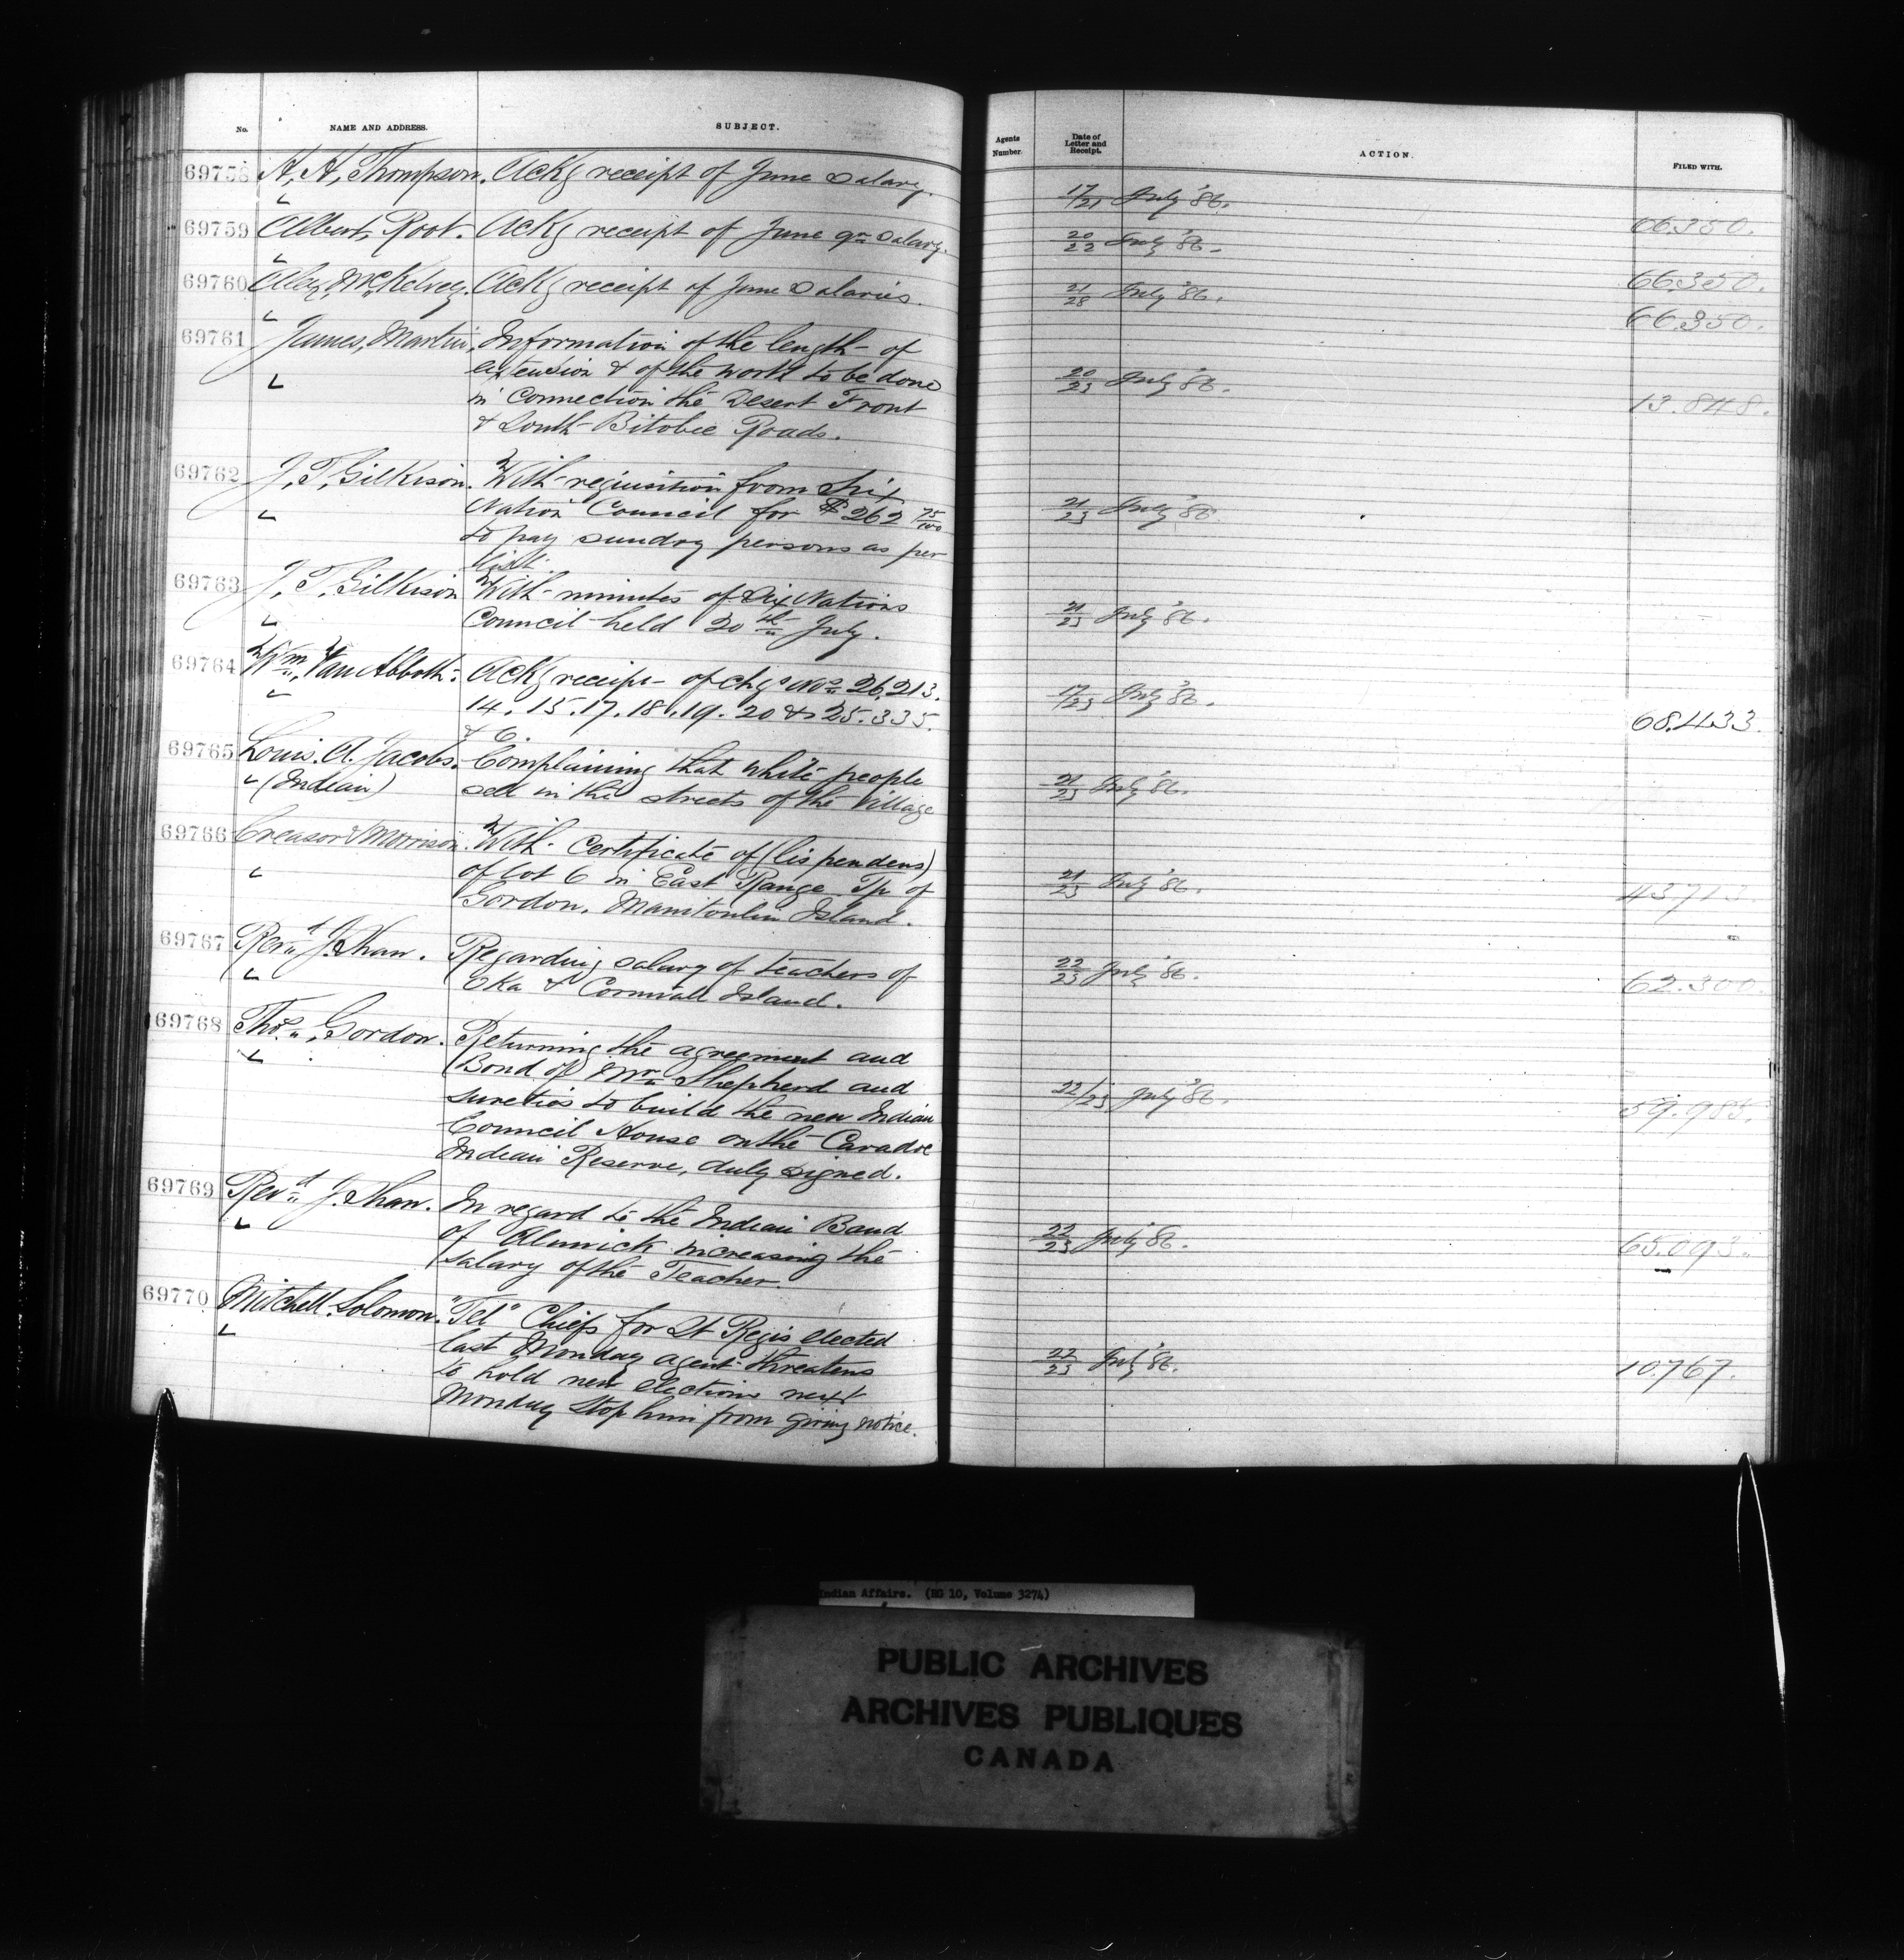 No.
NAME AND ADDRESS.
SUBJECT.
69758 A. A. Thompson. Ackg receipt of June Salary.
69759 Albert, Root. Ackg receipt of June qr Salary.
69760 Alex, McKelvey. Ackg receipt of June Salaries.
69761 James, Martin. Information of the length of
extension & of the work to be done
in Connection the Desert Front
& South Bitobee Roads.
69762 J. T. Gilkison. With requisition from Six
Nation Council for $262 75/100
to pay sundry persons as per
list.
69763 J. T. Gilkison With minutes of Six Nations
Council held 20th July.
69764 Wm. Van Abbott. Ackg receipt of chqs Nos 26.213.
14. 15. 17. 18. 19. 20 & 25.335.
& 6.
69765 Louis. A. Jacobs. Complaining that white people
(Indian) sell in the streets of the Village
69766 Creasor & Morrison. With Certificate of (lis pendens)
of lot 6 in East Range Tp of
Gordon, Manitoulin Island.
69767 Revd. J. Shaw. Regarding salary of teachers of
Oka & Cornwall Island.
69768 Thos., Gordon. Returning the agreement and
(Bond of) Mr. Shepherd and
sureties to build the new Indian
Council House on the Caradoc
Indian Reserve, duly signed.
69769 Revd. J. Shaw. In regard to the Indian Band
of Alnwick increasing the
salary of the Teacher.
69770 Mitchell. Solomon. "Tel" Chiefs for St Regis elected
last Monday agent threatens
to hold new election next
Monday stop him from giving notice.
Agents
Number.
Date of
Letter and
Receipt.
ACTION.
FILED WITH.
17/21 July '86.
66.350.
20/22 July '86.
66.350.
21/28 July '86.
66.350.
20/23 July '86.
13.848.
21/23 July '86
21/23 July '86.
17/23 July '86.
68.433.
21/23 July '86.
21/23 July '86.
43713.
22/23 July '86.
62.300.
22/23 July '86.
59.985.
22/23 July '86.
65.093.
22/23 July '86.
10.767.
Indian Affairs. (RG 10, Volume 3274)
PUBLIC ARCHIVES
ARCHIVES PUBLIQUES
CANADA